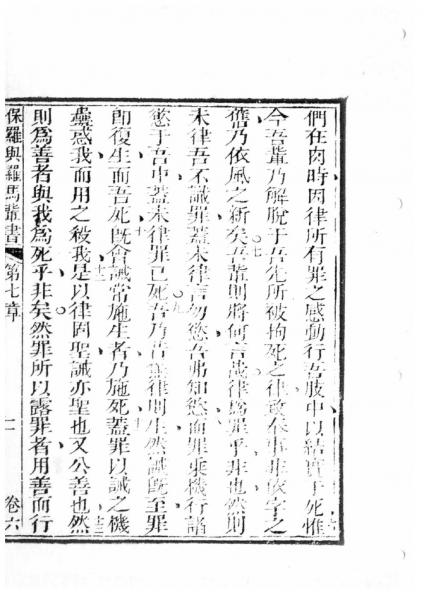 們在肉時因律所有罪之感動行吾肢中以結實于死惟
今吾輩乃解脫于吾先所被拘死之律致奉事非依字之
舊乃依風之新矣吾輩則將何言哉律為罪乎非也然則
未律吾不識罪蓋未律言勿慾吾弗知慾而罪乘機行諸
慾于吾中蓋未律罪已死吾乃昔無律則生然誡既至罪
即復生而吾死既會誡常施生者乃施死蓋罪以誡之機
蠱惑我而用之殺我是以律固聖誡亦聖也又公善也然
則為善者與我為死乎非矣然罪所以露罪者用善而行
保羅與羅馬輩書 第七章 二 卷六